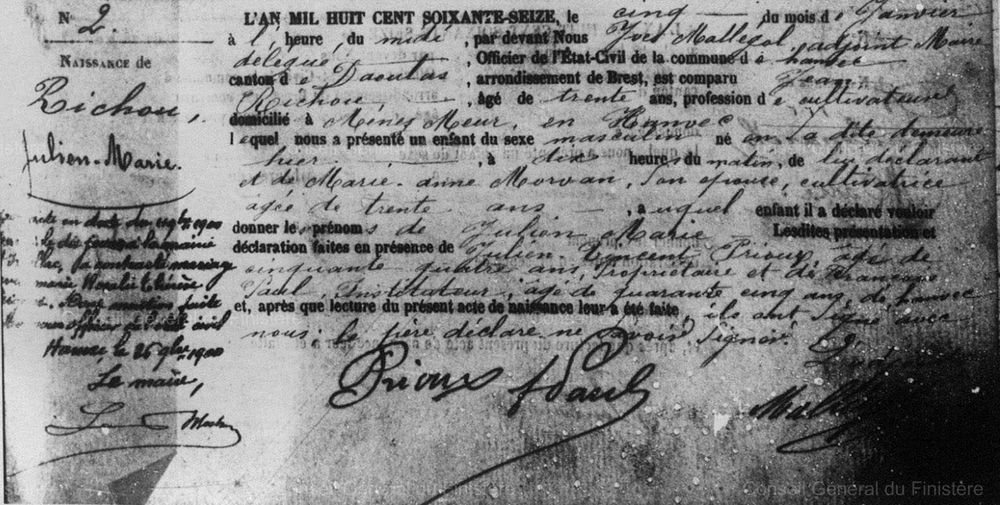 N° 2.
NAISSANCE de
Richou,
Julien-Marie.
L'AN MIL HUIT CENT SOIXANTE-SEIZE, le cinq du mois de Janvier
à l'heure du midi, par devant Nous Yves Mallegol, adjoint Maire
délégué, Officier de l'État-Civil de la commune de hanvec
canton de Daoulas, arrondissement de Brest, est comparu Jean
Richou, âgé de trente ans, profession de cultivateur
domicilié à Menes Meur, en Hanvec
lequel nous a présenté un enfant du sexe masculin né en la dite demeure
hier, à dix heures du matin, de lui déclarant
et de Marie-anne Morvan, son épouse, cultivatrice
agée de trente ans, auquel enfant il a déclaré vouloir
donner le prénoms de Julien Marie Lesdites présentation et
déclaration faites en présence de Julien Vincent Prioux, âgé de
cinquante quatre ans, Propriétaire et de François
Paul, Instituteur, âgé de quarante cinq ans, de hanvec
et, après que lecture du présent acte de naissance leur a été faite, ils ont signé avec
nous le père déclare ne savoir signer.
Prioux
Paul
en date du 1900
marie
officier de l'état civil
Hanvec le 26 9bre 1900
Le maire,
Conseil Général du Finistère